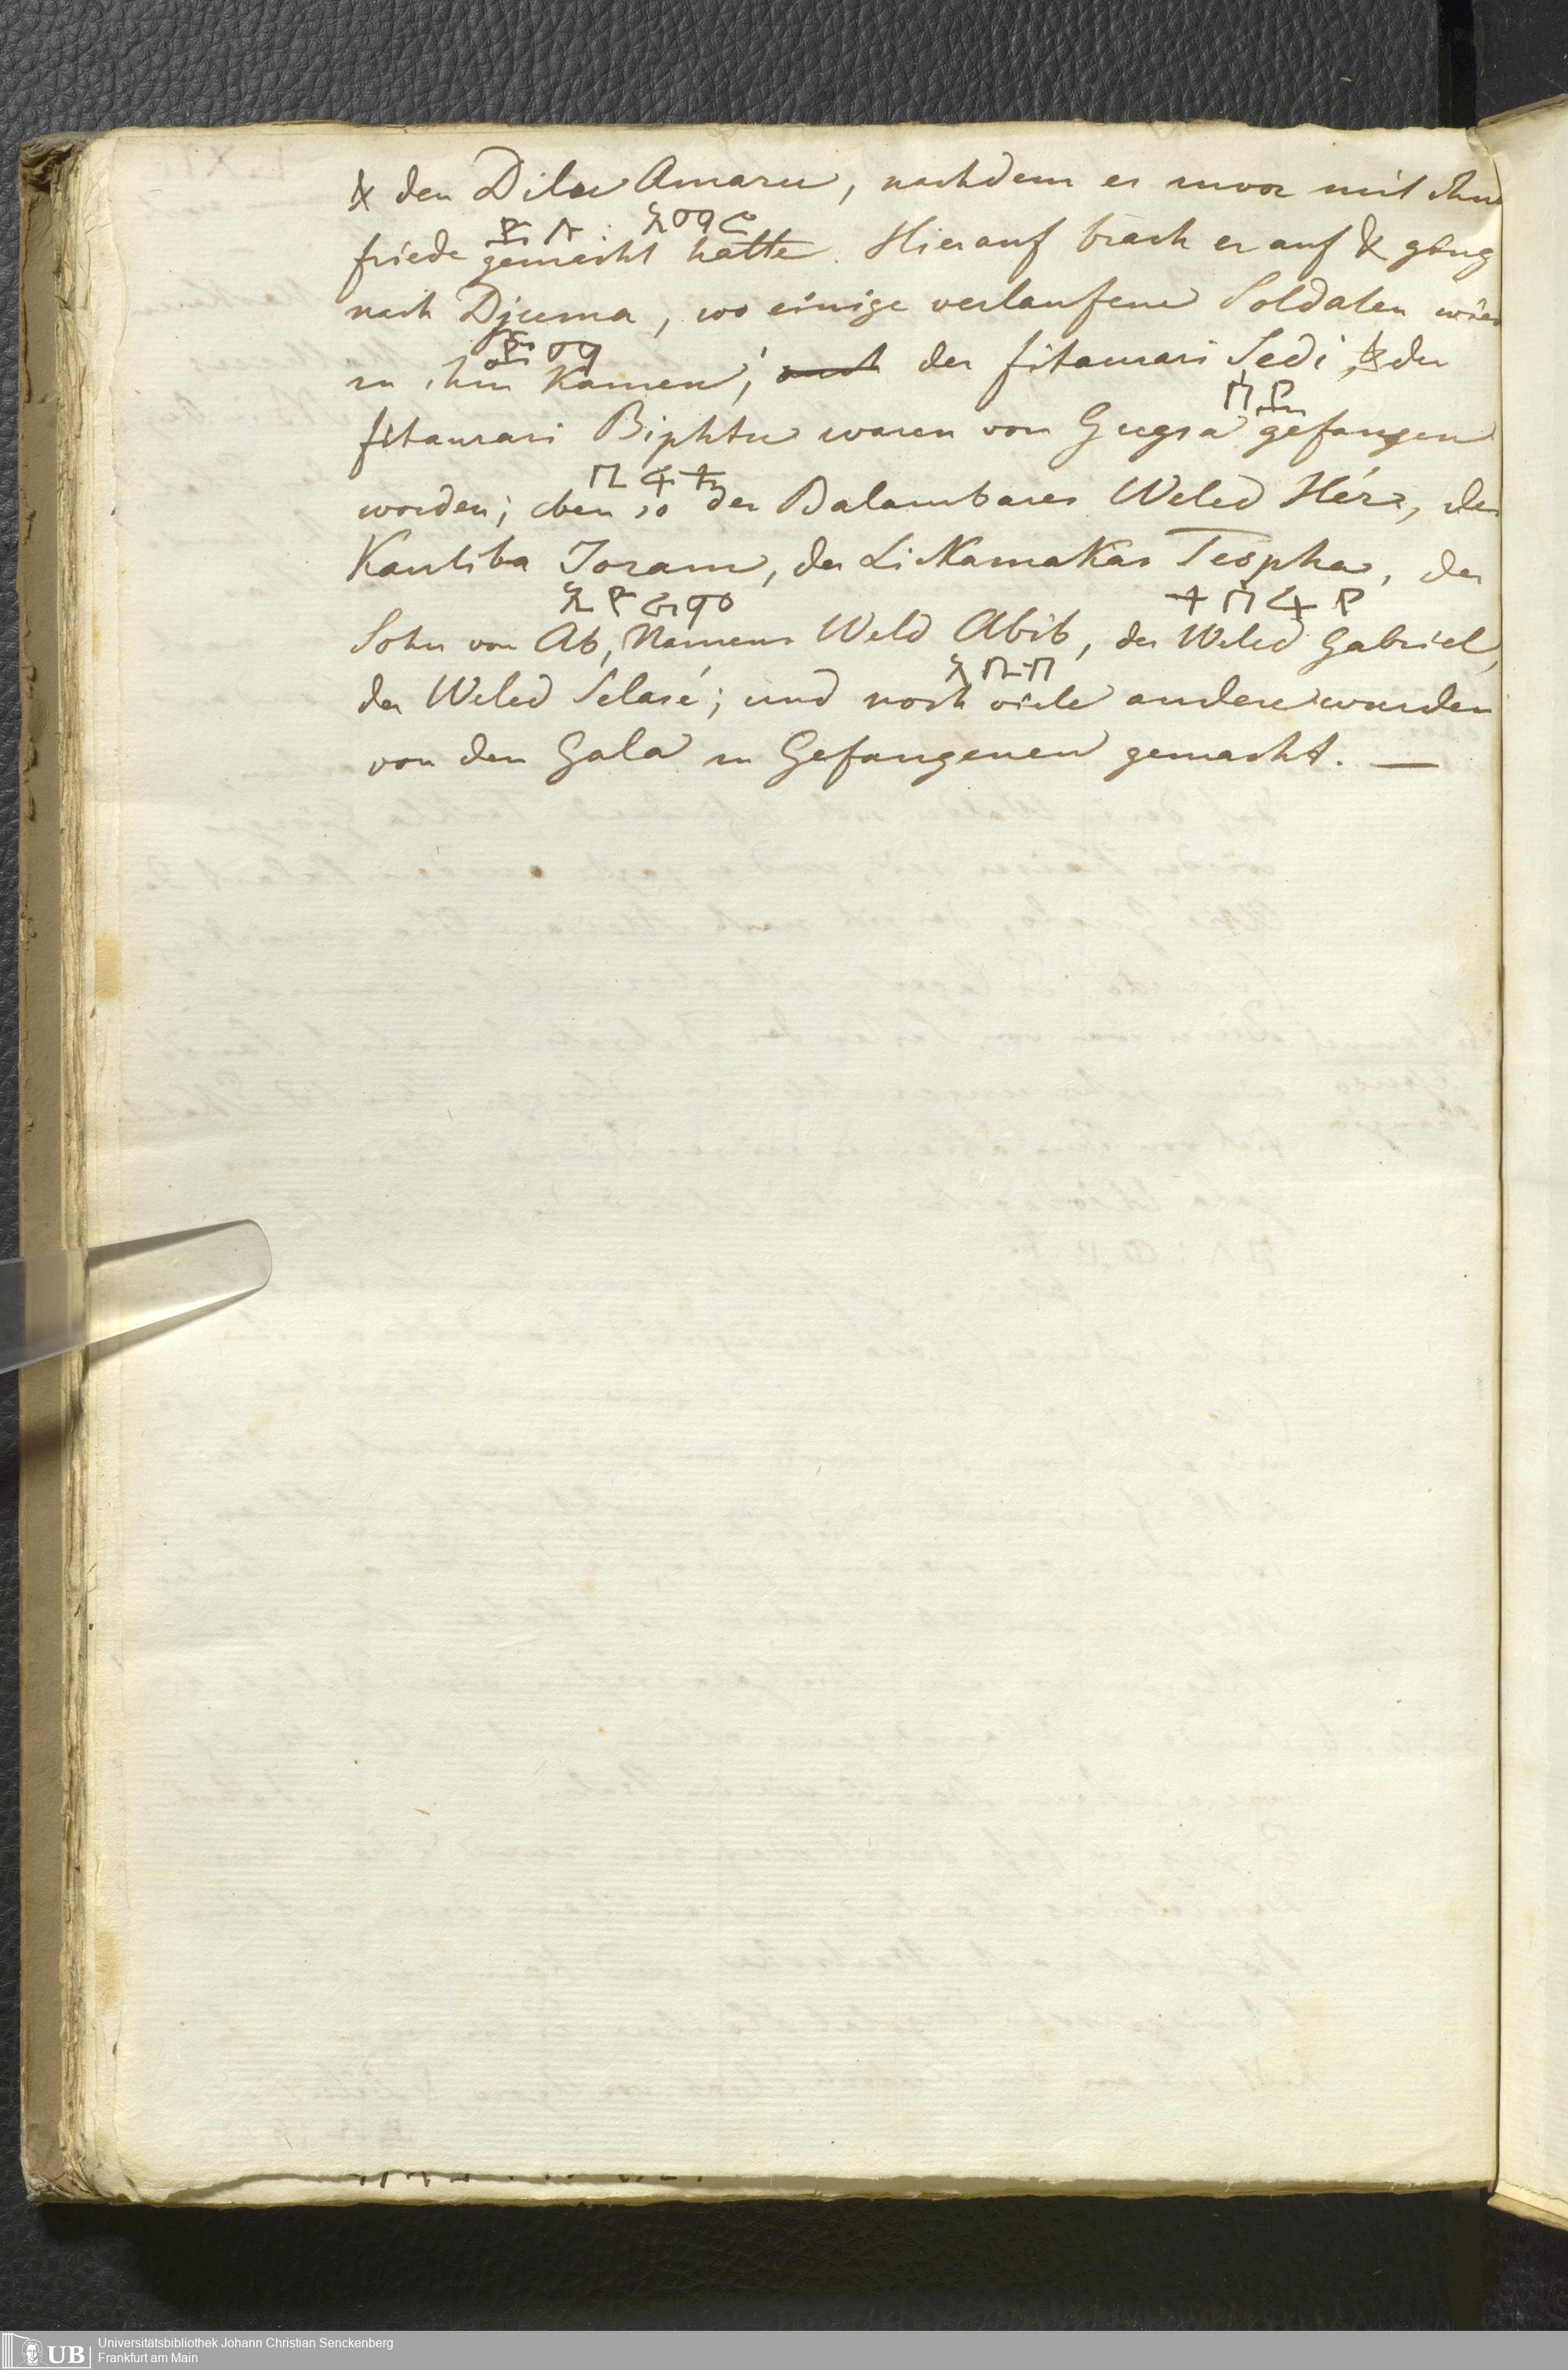 & den Dilu Amaru, nachdem er zuvor mit ihm
friede gemacht hatte. Hierauf brach er auf & gieng
nach Djuma, wo einige verlaufene Soldaten wied
zu ihm kamen; der fitaurari Sedi, & der
fitaurari Biphtu waren von Gugsa gefangen
worden; eben so der Balambares Weled Hér, der
Kantiba Joram, der Likamakas Tespha, der
ኢዮራም
ተስፋዮ
Sohn von Ab, Namens Weld Abib, der Weled Gabriel,
አቢብ
der Weled Selasé; und noch viele andere wurden
von den Gala zu Gefangenen gemacht. —
UB Universitätsbibliothek Johann Christian Senckenberg
Frankfurt am Main